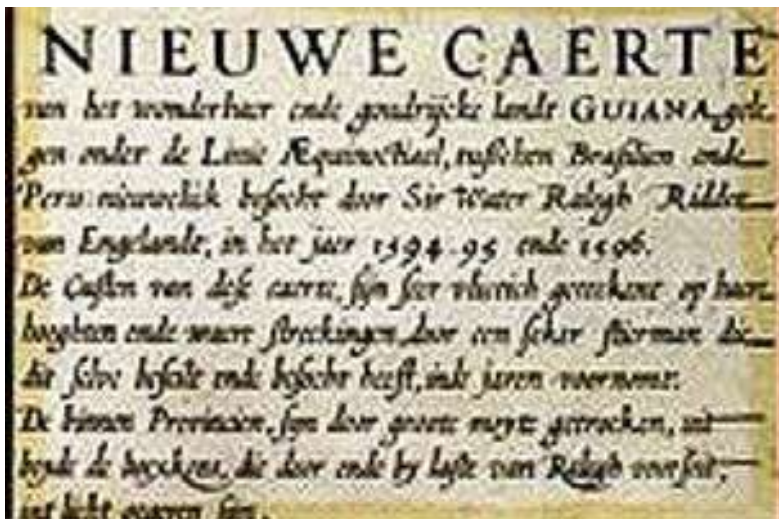 NIEUWE CAERTE
van het wonderbaer ende goudrijcke landt GUIANA, gele
gen onder de Linie Æquinoctiael, tusschen Brasilien ende
Peru: nieuwelick besocht door Sir Water Ralegh Ridder
van Engelandt, in het jaer 1594. 95 ende 1596.
De Custen van dese caerte, sijn seer vlietich geteekent op haere
hooghten ende waere streckingen, door een seker stierman die
dit selve beseilt ende besocht heeft, inde jaren voornomt.
De binnen Provincien, sijn door groote moyte getrocken, uut
beyde de boeckens, die door ende by laste van Ralegh voorseit,
int licht gegeven sijn.